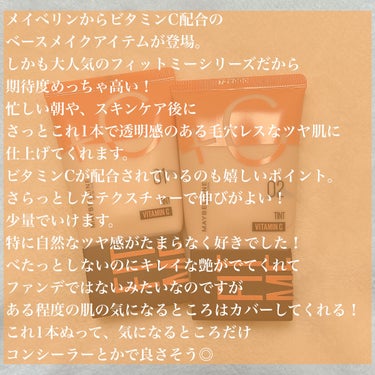 メイベリンからビタミンC配合の
ベースメイクアイテムが登場。
しかも大人気のフィットミーシリーズだから
期待度めっちゃ高い！
忙しい朝や、スキンケア後に
さっとこれ1本で透明感のある毛穴レスなツヤ肌に
仕上げてくれます。
ビタミンCが配合されているのも嬉しいポイント。
さらっとしたテクスチャーで伸びがよい！
少量でいけます。
特に自然なツヤ感がたまらなく好きでした！
べたっとしないのにキレイな艶がでてくれて
ファンデではないみたいなのですが
ある程度の肌の気になるところはカバーしてくれる！
これ1本ぬって、気になるところだけ
コンシーラーとかで良さそう◎
+C
01
VITAMIN C
MAYBELLINE
02
TINT
VITAMIN C